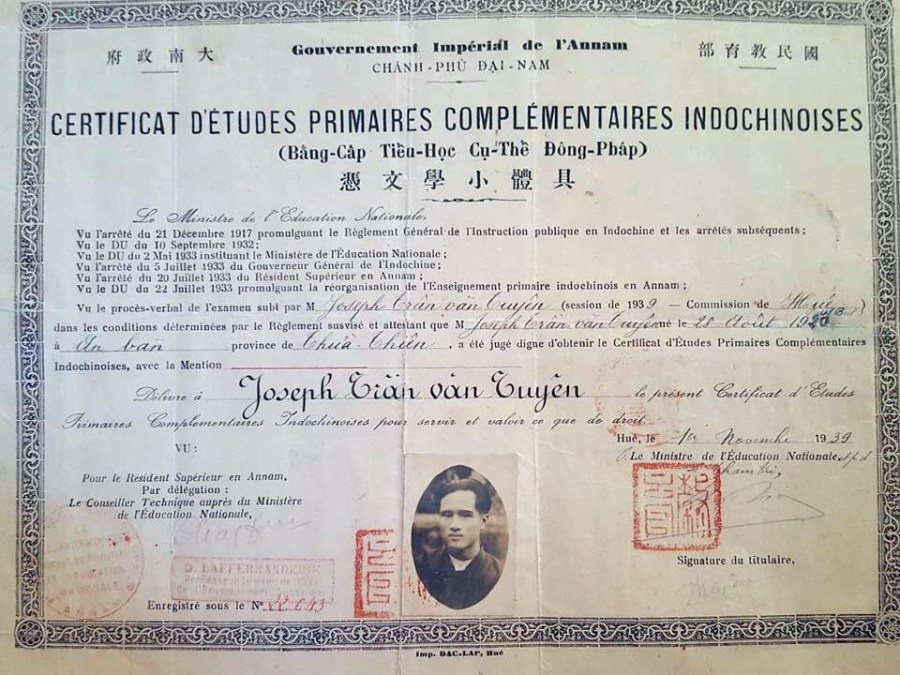 大南政府
Gouvernement Impérial de l'Annam
國民教育部
CHÁNH-PHỦ ĐẠI-NAM
CERTIFICAT D'ÉTUDES PRIMAIRES COMPLÉMENTAIRES INDOCHINOISES
(Bằng-Cấp Tiểu-Học Cụ-Thể Đông-Pháp)
具體小學文憑
Le Ministre de l'Education Nationale,
Vu l'arrêté du 21 Décembre 1917 promulguant le Règlement Général de l'Instruction publique en Indochine et les arrêtés subséquents;
Vu le DU du 10 Septembre 1932;
Vu le DU du 2 Mai 1933 instituant le Ministère de l'Éducation Nationale;
Vu l'arrêté du 5 Juillet 1933 du Gouverneur Général de l'Indochine;
Vu l'arrêté du 20 Juillet 1933 du Résident Supérieur en Annam;
Vu le DU du 22 Juillet 1933 promulguant la réorganisation de l'Enseignement primaire indochinois en Annam;
Vu le procès-verbal de l'examen subi par M Joseph Trần văn Tuyên (session de 1939 — Commission de Huế)
dans les conditions déterminées par le Règlement susvisé et attestant que M Joseph Trần văn Tuyên né le 28 Août 1920
à An bằn province de Thừa-Thiên, a été jugé digne d'obtenir le Certificat d'Études Primaires Complémentaires
Indochinoises, avec la Mention
Délivré à Joseph Trần văn Tuyên le présent Certificat d'Etudes
Primaires Complémentaires Indochinoises pour servir et valoir ce que de droit.
VU:
Huế, le 1er Novembre 1939
Le Ministre de l'Éducation Nationale,
Pour le Resident Supérieur en Annam,
Par délégation:
Le Conseiller Technique auprès du Ministère
de l'Éducation Nationale,
D LAFFERRANDERIE
Signature du titulaire,
Enregistré sous le N°
Imp. ĐẮC-LẬP, Huế